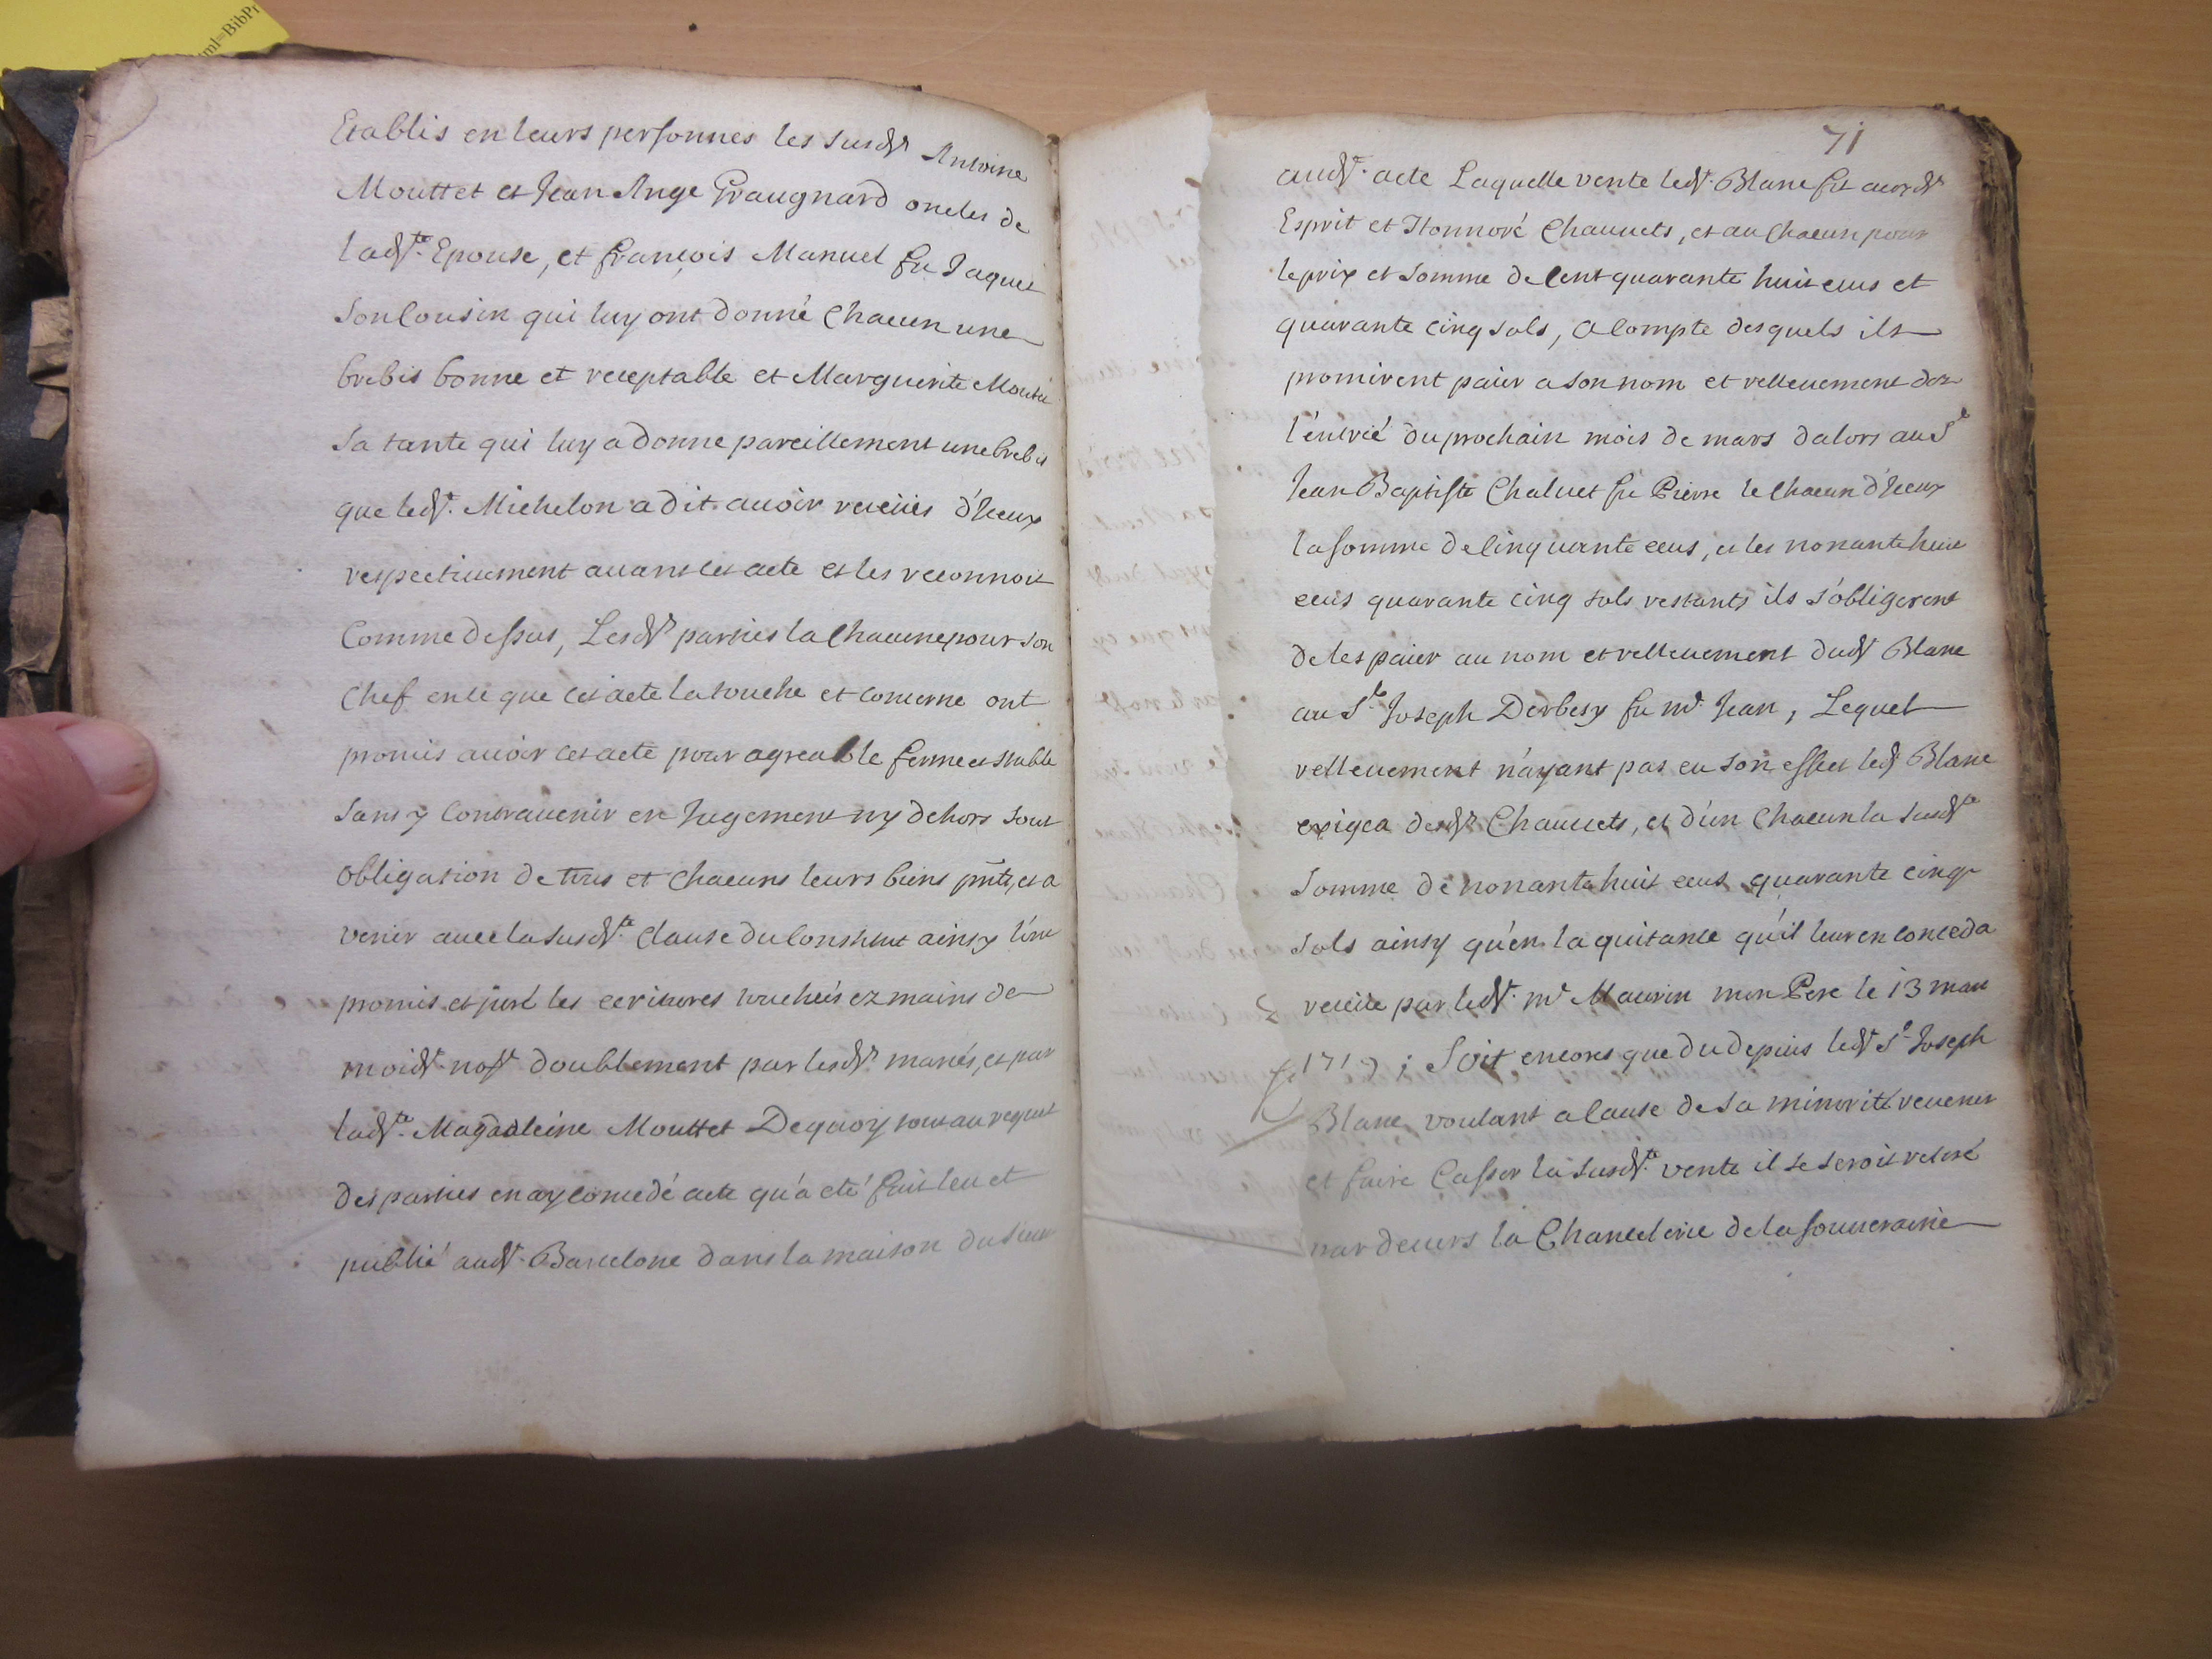 uml=BibPr
Etablis en leurs personnes les susdts Antoine
Mouttet et Jean Ange Graugnard oncles de
ladte. Epouse, et françois Manuel fu Jaques
son Cousin qui luy ont donné Chacun une
brebis bonne et receptable et Marguerite
sa tante qui luy a donne pareillement une brebis
que ledt. Michelon a dit avoir receües d'Iceux
respectivement avant cet acte et les reconnoit
Comme dessus, Lesdts parties la Chacune pour son
Chef en ce que cet acte la touche et concerne ont
promis avoir cet acte pour agreable ferme et stable
sans y Contravenir en Jugement ny dehors sout
obligation de tous et Chacuns leurs biens pnts, et a
venir avec la susdte. Clause du Constitut ainsy l'ont
promis et juré les ecritures touchées ez mains de
moidt. nore doublement par lesdts mariés, et par
ladte. Magdaleine Mouttet Dequoy tout au requis
des parties en ay concedé acte qu'a eté fait leu et
publié audt. Barcelone dans la maison du sieur
71
audt. acte Laquelle vente ledt. Blanc fit auxdts
Esprit et Honnoré Chauvets, et au Chacun pour
le prix et somme de Cent quarante huit ecus et
quarante cinq sols, a Compte desquels ils
promirent paier a son nom et rellevement dez
l'entrée du prochain mois de mars d'alors au Sr
Jean Baptiste Chalvet fu Pierre le Chacun d'Iceux
la somme de Cinquante ecus, et les nonante huit
ecus quarante cinq sols restants ils s'obligerent
de les paier au nom et rellevement dudt Blanc
au Sr. Joseph Derbesy fu me. Jean, Lequel
rellevement n'ayant pas eu son effet ledt Blanc
exigea desdts Chauvets, et d'un Chacun la susdte
somme de nonante huit ecus quarante cinq
sols ainsy qu'en la quitance qu'il leur en conceda
receüe par ledt. me Maurin mon Pere le 13 mars
1719 ; Soit encores que du depuis ledt Sr Joseph
Blanc voulant a Cause de sa minorité revenir
et faire Casser la susdte. vente il se seroit retiré
par devers la Chancelerie de la souveraine